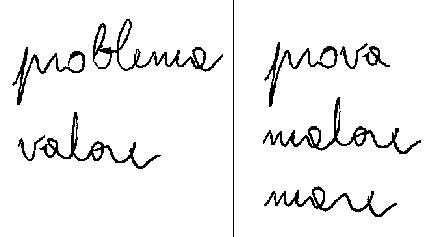 problema
valore
prova
malore
mare